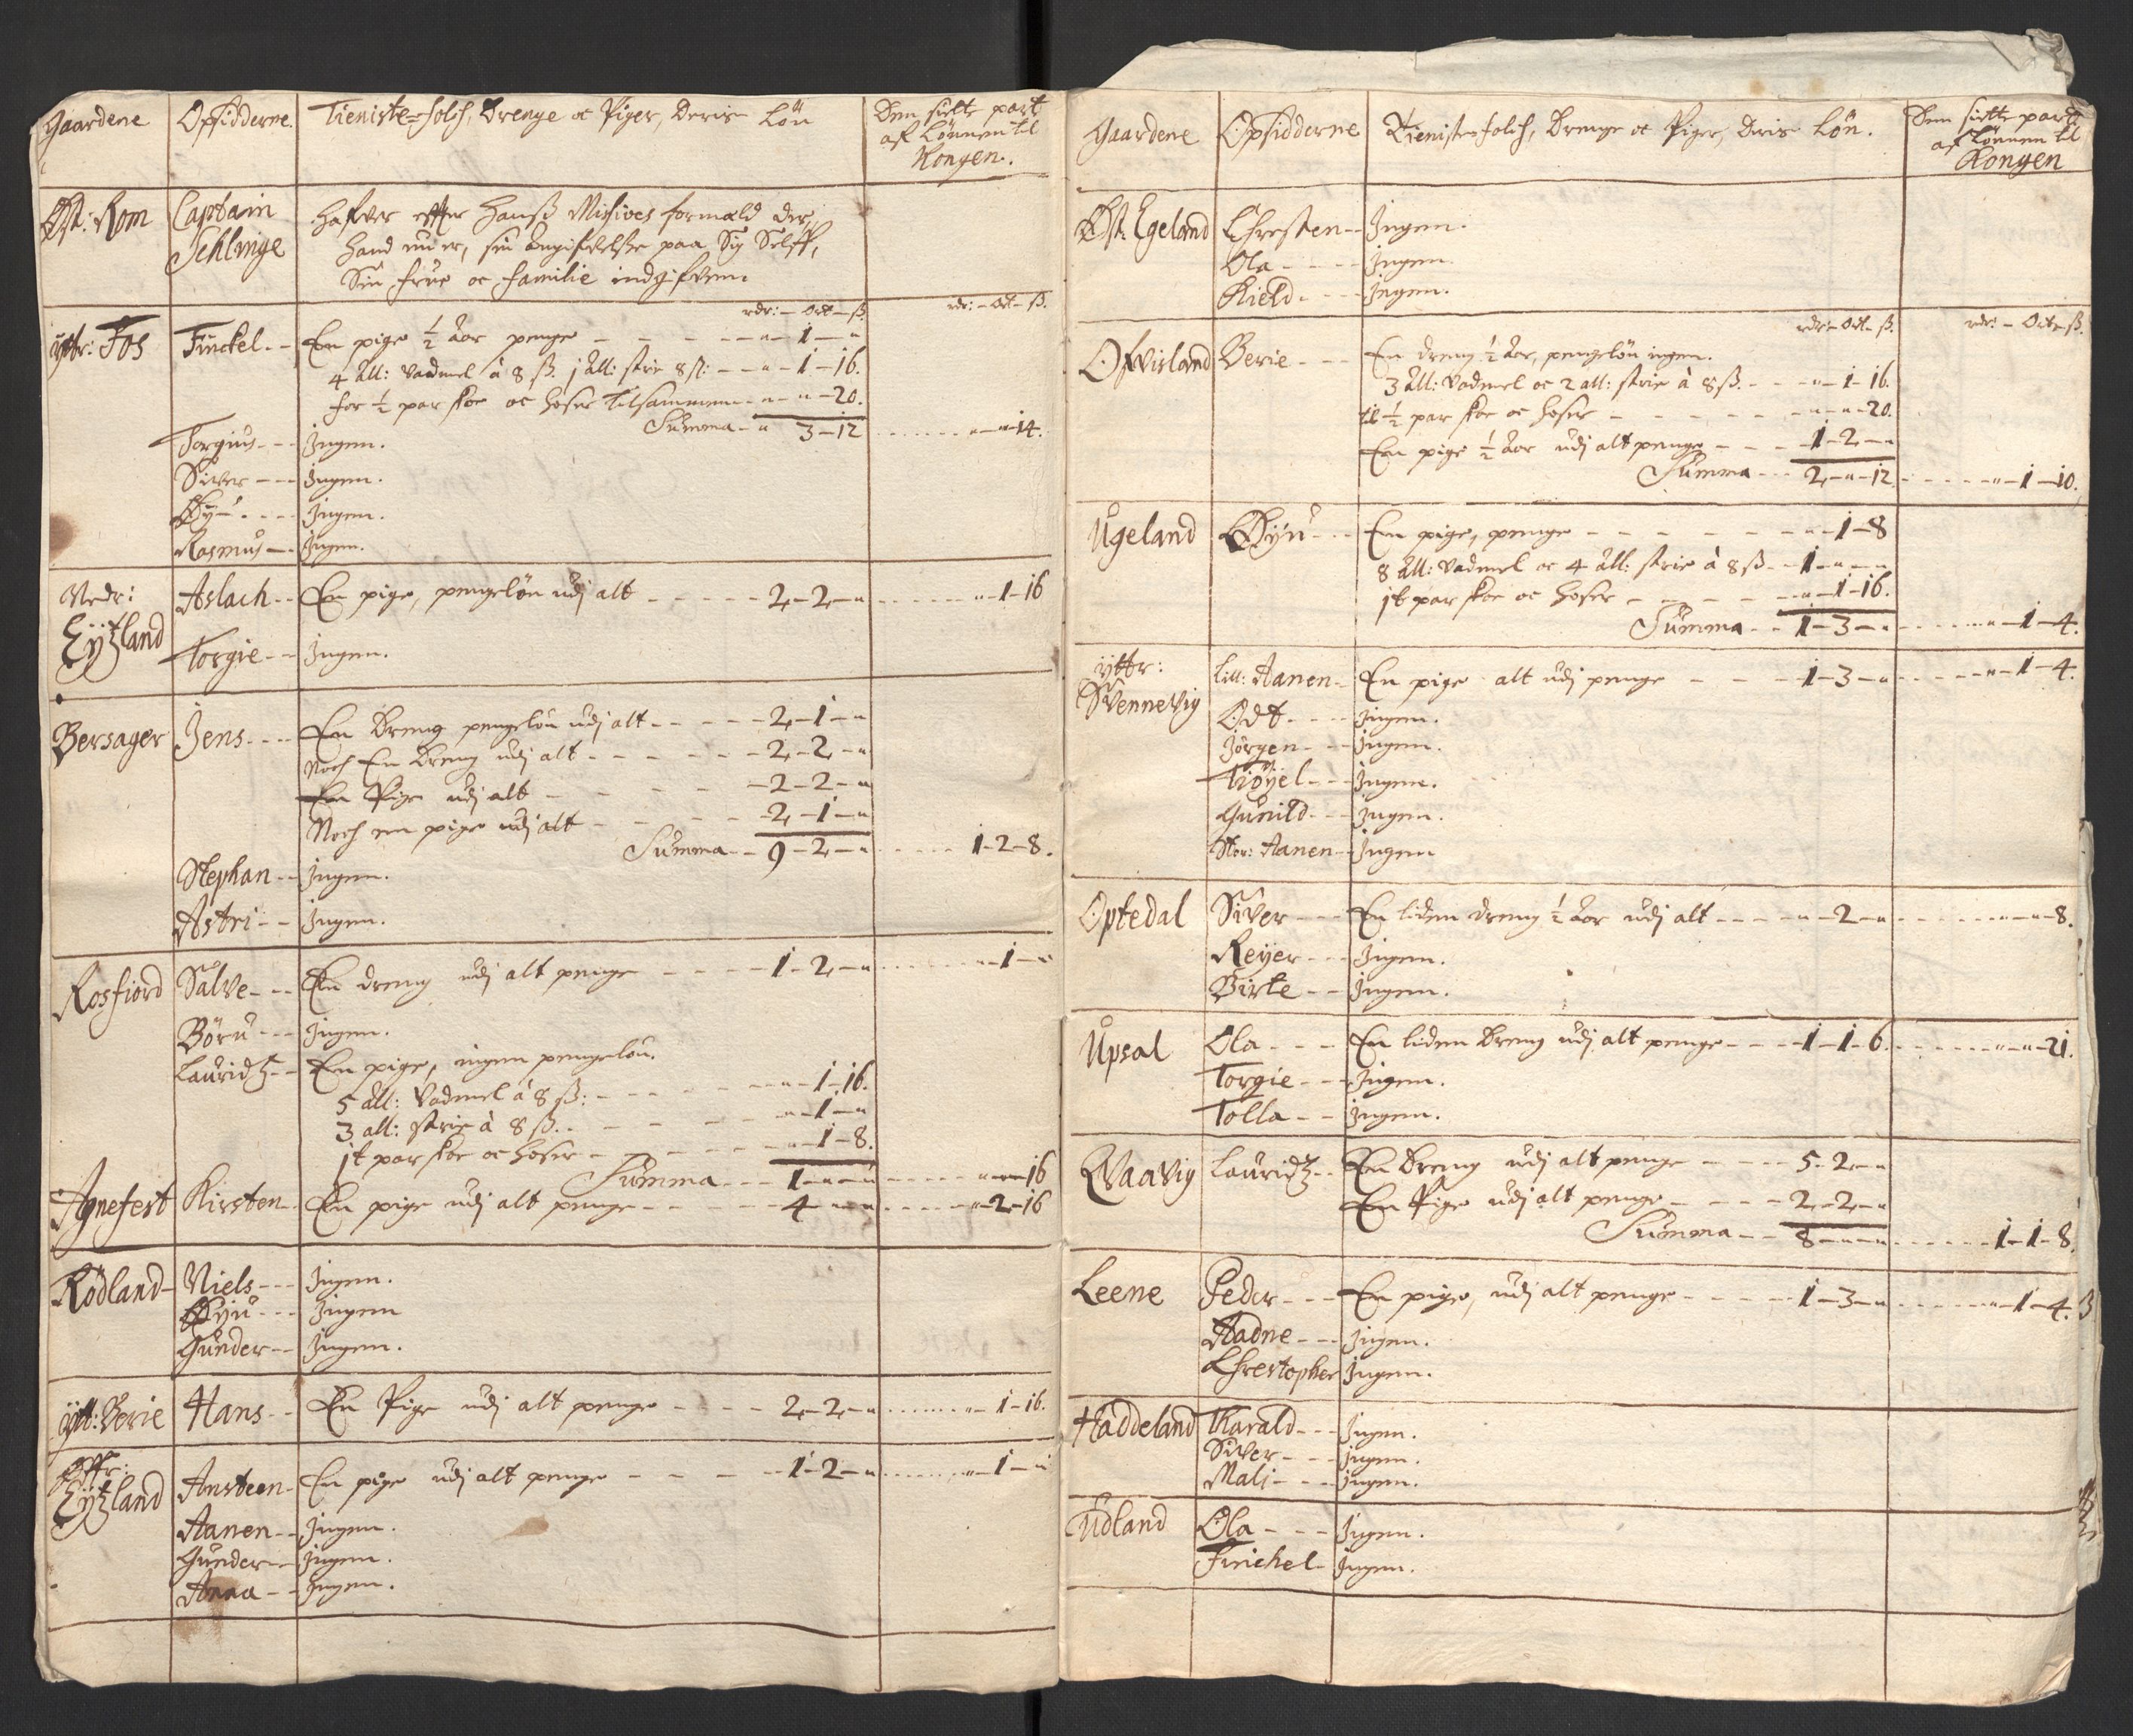 Gaardene Opsidderne. Tieniste-folch, Drenge oc Piger, Deris Løn Den siette part
af Lønnen til
Kongen.
Øst: Rom Captain hafver effter Hanß Missives formæld der,
Schlinge hand nu er, sin angifvelse paa Sig Selff,
Sin frue oc familie indgifven.
rdr: – Ort – ß. rdr: – Ort – ß.
Ytter: Fos Finckel – – En pige ½ Aar penge – – – – – „ – 1 – „
4 All: Vadmel à 8 ß. 1 All: strie 8 ß: – – „ – 1 – 16.
for ½ par skoe oc hoser Tilsammen – „ – „ – 20.
Summa – „ 3 – 12 . . . . . . „ – „ – 14.
Torgius – – Ingen.
Siver – – – Ingen.
Øyu . – – – Ingen.
Rasmus – – Ingen.
Nedr: Aslach – – En pige, pengeløn udj alt – – – – – 2 – 2 – „ . . . . . . „ – 1 – 16
Eÿtzland
Torgie – – Ingen.
Bersager Jens. – – – En Dreng pengeløn udj alt – – – – – 2 – 1 – „
Noch En Dreng udj alt – – – – – – 2 – 2 – „
En Pige udj alt – – – – – 2 – 2 – „
Noch en pige udj alt – – – – – 2 – 1 – „
Summa – – 9 – 2 – „ . . . . . 1 – 2 – 8.
Stephan – – Ingen.
Astri – – Ingen.
Rosfiord Salve – – – En dreng udj alt penge – – – – 1 – 2 – „ . . . . . . „ – 1 – „
Böru – – – Ingen.
Lauridtz – – En pige, ingen pengeløn.
5 All: Vadmel à 8 ß: – – – – – – „ – 1 – 16.
3 all: strie à 8 ß. . – – – – – „ – 1 – „
1t par skoe oc hoser – – – – – – „ – 1 – 8.
Summa – – – 1 – „ – „ . . . . . „ – „ – 16
Agnefest Kirsten – – En pige udj alt penge – – – – – 4 – „ – „ . . . . . „ – 2 – 16
Rödland – Niels – – – Ingen.
Øyu – – – Ingen
Gunder – – Ingen.
ÿtt: Berie Hans – – En Pige udj alt penge – – – – 2 – 2 – „ . . . . . . „ – 1 – 16.
Øffr:
Eÿtzland Ansteen – En pige udj alt penge – – – – – 1 – 2 – „ . . . . . . „ – 1 – „
Aanen – – Ingen.
Gunder – – Ingen.
Anna – – Ingen.
Gaardene Opsidderne Tieniste folch, Drenge oc Piger, Deris Løn. Den siette part
af Lønnen til
Kongen
Øst: Egeland Chresten – – Ingen.
Ola – – – – Ingen.
Kield. – – – Ingen.
rdr: – Ort – ß. rdr: – Ort – ß.
Ofvisland Berie – – – En dreng ½ Aar, pengeløn ingen.
3 All: Vadmel oc 2 all: strie à 8 ß. – – – „ – 1 – 16.
til ½ par skoe oc hoser – – – – – – – „ – „ – 20.
En pige ½ Aar udj alt penge – – – 1 – 2 – „
Summa – – – 2 – „ – 12 . – – – – „ – 1 – 10.
Ugeland Øÿu – – – En pige, penge – – – – – – – „ – 1 – 8
8 All: Vadmel oc 4 All: strie à 8 ß – – 1 – „ – „
1t par skoe oc hoser – – – – – – „ – 1 – 16.
Summa – – 1 – 3 – „ . . . . . . „ – 1 – 4.
ÿtter: Lill: Aanen – En pige alt udj penge – – – – 1 – 3 – „ . . . . . „ – 1 – 4.
Svennevig
Odt. – – – Ingen.
Jörgen – – – Ingen.
Tiøÿel – – – Ingen.
Gunild – – – Ingen.
Stor: Aanen – Ingen
Optedal Siver – – – En liden dreng ½ Aar udj alt – – – – „ – 2 – „ . . . . . . „ – „ – 8.
Reÿer – – – Ingen.
Birte – – – Ingen.
Upsal Ola – – – En liden Dreng udj alt penge – – – – 1 – 1 – 6. . . . . . . „ – „ – 21.
Torgie – – – Ingen.
Tolla – – Ingen.
Qvaavig Lauridtz – – En Dreng udj alt penge – – – – 5 – 2 – „
En Pige udj alt penge – – – – – 2 – 2 – „
Summa – – 8 – „ – „ . . . . . 1 – 1 – 8.
Leene Peder – – – En pige, udj alt penge – – – – – 1 – 3 – „ . . . . . „ – 1 – 4. 3
Aadne – – – Ingen.
Chrestopher Ingen.
Haddeland Harald – – – Ingen.
Siver – – – Ingen.
Mali – – – – Ingen.
Udland Ola – – – Ingen.
Finchel – Ingen.